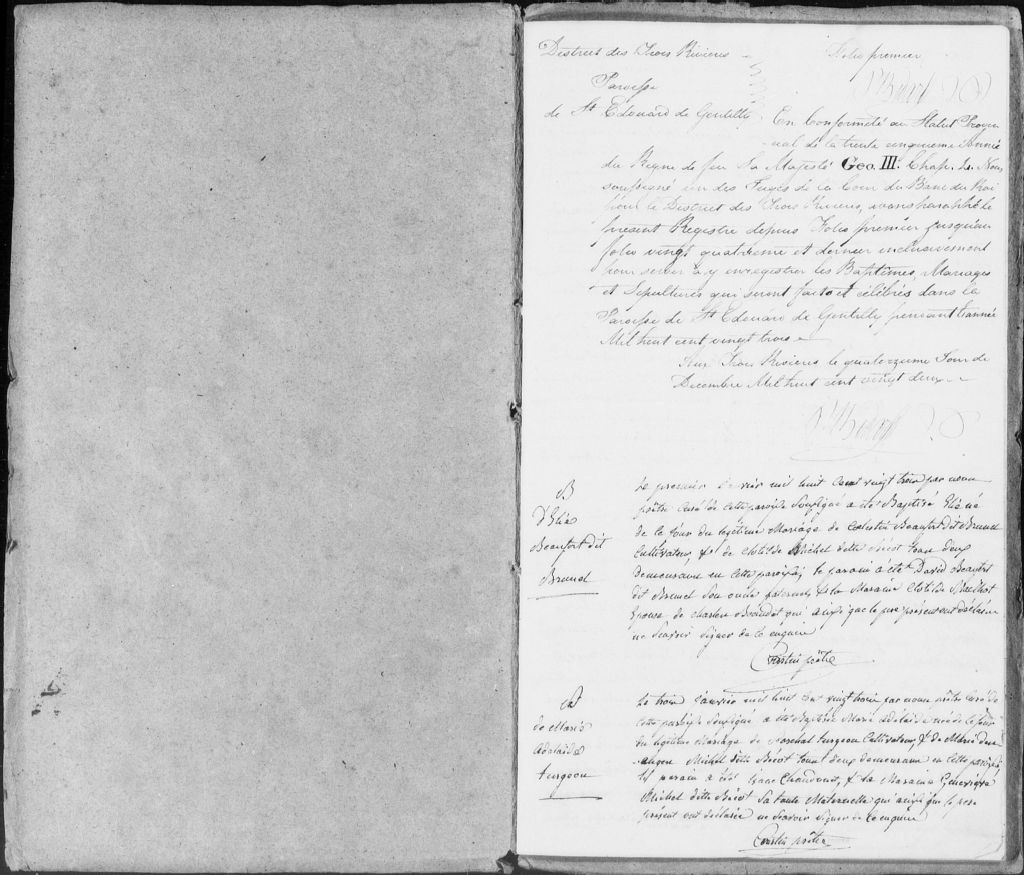 District des Trois Rivieres
Folio premier
Paroisse
de St Edouard de Gentilly
En Conformité au Statut Provin
cial de la trente cinquieme Année
du Regne de feu Sa Majesté Geo. III. Chap. 4. Nous
soussigné un des Juges de la Cour du Banc du Roi
pour le District des Trois Rivieres, avons paraphé le
present Registre depuis Folio premier jusqu'au
folio vingt quatrieme et dernier inclusivement
pour servir à y enregistrer les Baptêmes, Mariages
et Sépultures qui seront faits et célébrés dans la
Paroisse de St Edouard de Gentilly pendant l'année
Mil huit cent vingt trois
Aux Trois Rivieres le quatorzieme Jour de
Decembre Mil huit cent vingt deux
B
D'Elie
Beaufort dit
Brunel
Le premier mil huit cent vingt trois par nous
prêtre Curé de cette paroisse Soussigné a été Baptisé Elie né
de ce jour du legitime Mariage de Celestin Beaufort dit Brunel
Cultivateur, & de Clotilde Michel dette Bicot tous deux
demeurant en cette paroisse; le parain a été David Beaufort
dit Brunel Son oncle paternel, & la Maraine Clotilde
Epouse de Charles Beaudet qui ainsi que le pere présent ont déclaré
ne Scavoir Signer de ce enquis
Courtin prêtre
B
de Marie
Adelaide
turgeon
Le trois Janvier mil huit cent vingt trois par nous prêtre Curé de
cette paroisse Soussigné a été Baptisée Marie Adelaide née de ce jour
du legitime Mariage de turgeon Cultivateur, & de Marie
Michel dette Bicot tous deux demeurant en cette paroisse
Le parain a été Isaac & la Maraine Genevieve
Michel dette Bicot Sa tante Maternelle qui ainsi que le pere
présent ont déclaré ne Scavoir Signer de ce enquis
Courtin prêtre